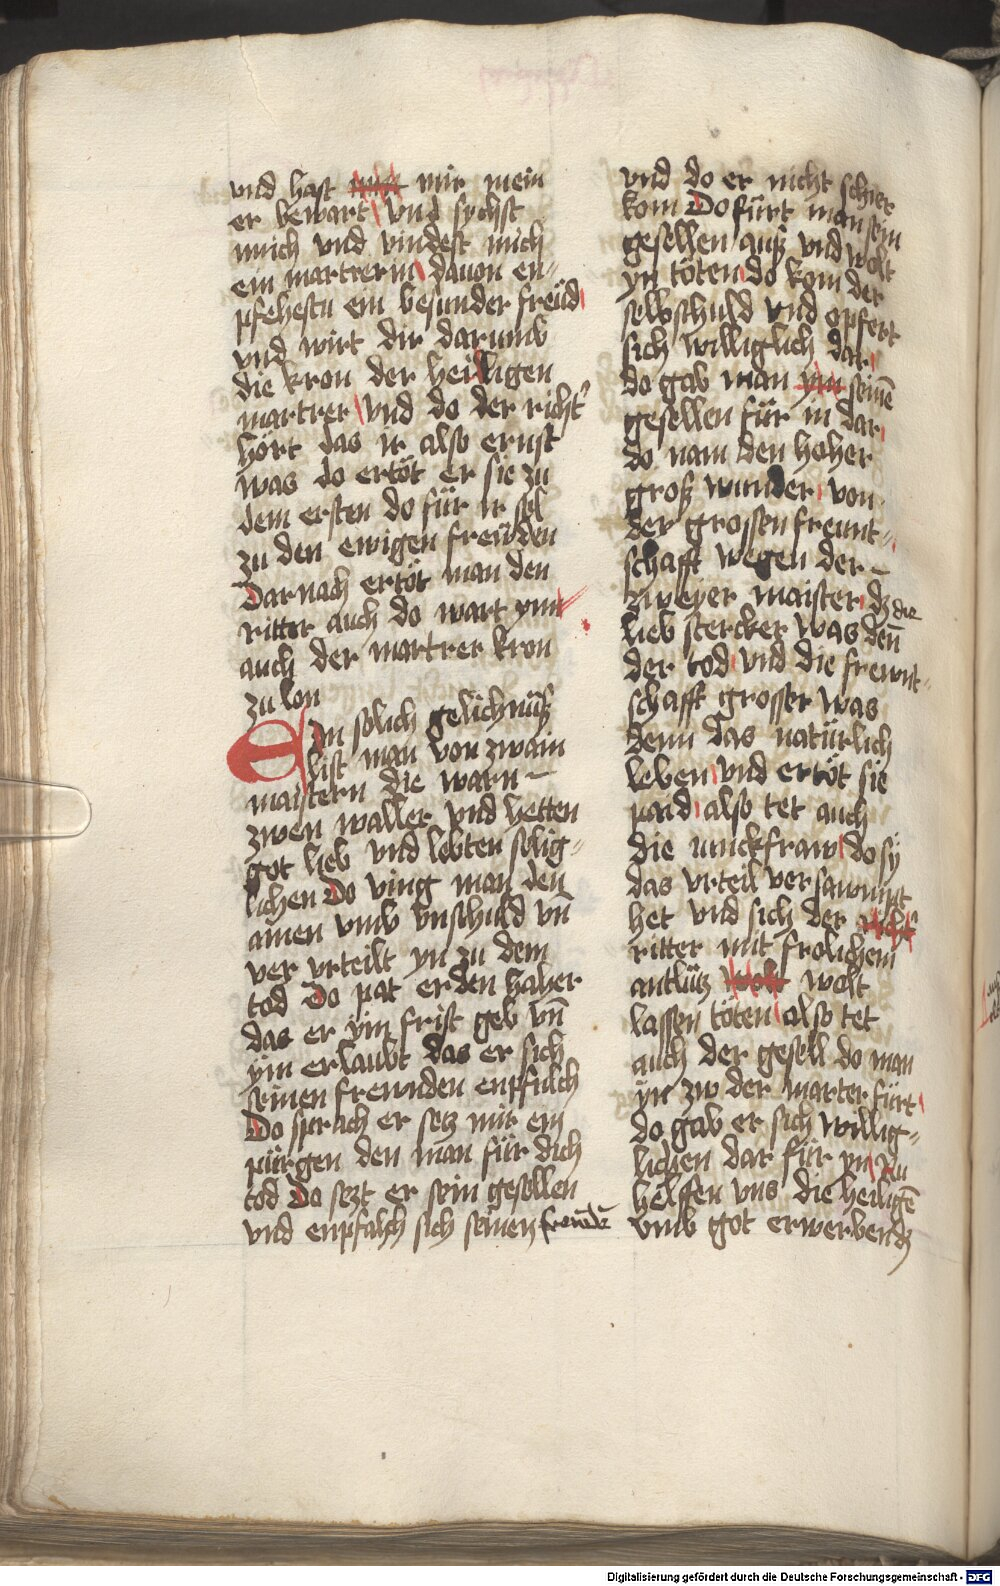 vnd hast mir mein
er bewart vnd sychst
mich vnd vindest mich
ein martrerin dauon en-
pfehestu ein besunder freüd
vnd wirt dir darumb
die kron der heiligen
martrer vnd do der richt
hört das ir also ernst
was do ertöt er sie zu
dem ersten do für ir sel
zu den ewigen freüden
Darnach ertöt man den
ritter auch do wart ym
auch der martrer kron
zu lon
Ein solich gelichnüß
list man von zwain
maistern die warn
zwen waller vnd hetten
got lieb vnd lebten selig-
lichen Do ving man den
ainen vmb vnschuld vn̄
ver vrteilt yn zu dem
tod Do pat er den haher
das er ym frist geb vn̄
ym erlaubt das er sich
seinen freunden enpfulch
Do sprach er setz mir ein
pürgen den man für dich
töd Do sezt er sein gesellen
vnd enpfalch sich seinen
vnd do er nicht schier
kom Do fürt man sein
gesellen auß vnd wolt
yn töten do kom der
selbschuld vnd opfert
sich williglich dar
do gab man seinē
gesellen für in dar
do nam den hoher
groß wunder von
der grossen freunt-
schafft wegen der
zweyer maister dz die
lieb stercker was den̄
der tod vnd die freunt-
schafft grosser was
denn das natürlich
leben vnd ertöt sie
paid also tet auch
die iunckfraw do sy
das vrteil versawmpt
het vnd sich der
ritter mit frolichem
antlütz wolt
lassen töten also tet
auch der gesell do man
yn zw der marter fürt
do gab er sich willig-
lichen dar für yn Nu
helffen vns die heiligē
vmb got erwerbend
Digitalisierung gefördert durch die Deutsche Forschungsgemeinschaft - DFG